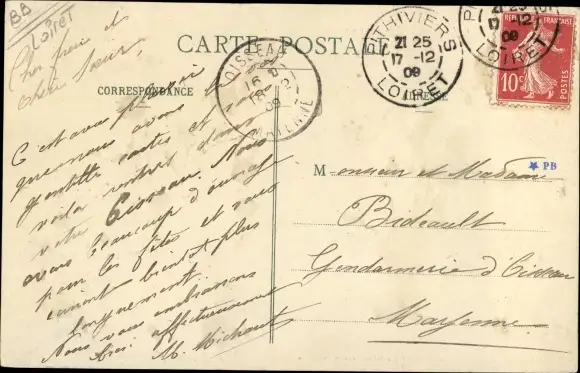 BB
Loiret
CARTE POSTALE
CORRESPONDANCE
ADRESSE
Cher frère et
chère Sœur,
C'est avec plaisir
que nous avons
gentille cartes et
voilà rentrés dans
votre Nous
avons beaucoup d'ouvrage
pour les fêtes et vous
bientôt plus
longuement.
Nous vous embrassons
bien affectueusement
M. Michaut
OISSEAU
18 -12
09
MAYENNE
PITHIVIERS
21 25
17 -12
09
LOIRET
PITHIVIERS
21 25
17 -12
09
LOIRET
RÉPUBLIQUE FRANÇAISE
10c
POSTES
Monsieur et Madame
PB
Bideault
Gendarmerie d'Oisseau
Mayenne